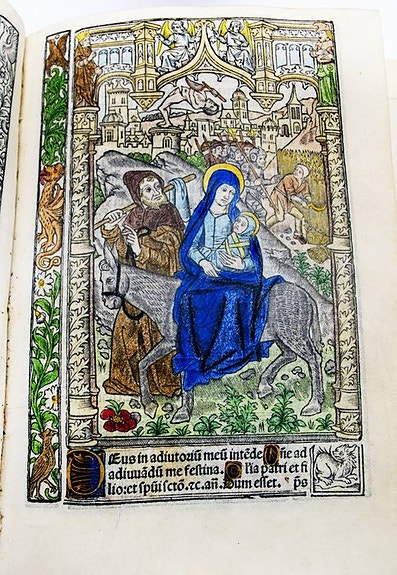 Deus in adiutoriũ meũ intẽde Dñe ad
adiuuãdũ me festina. Glĩa patri et fi
lio: et spũi sctõ. ⁊c. añ. Dum esset. ps